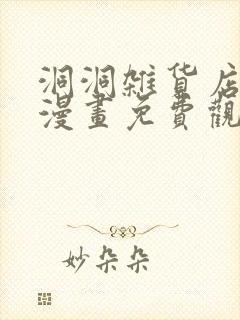 洞洞雜貨店
漫畫免費觀
妙朵朵